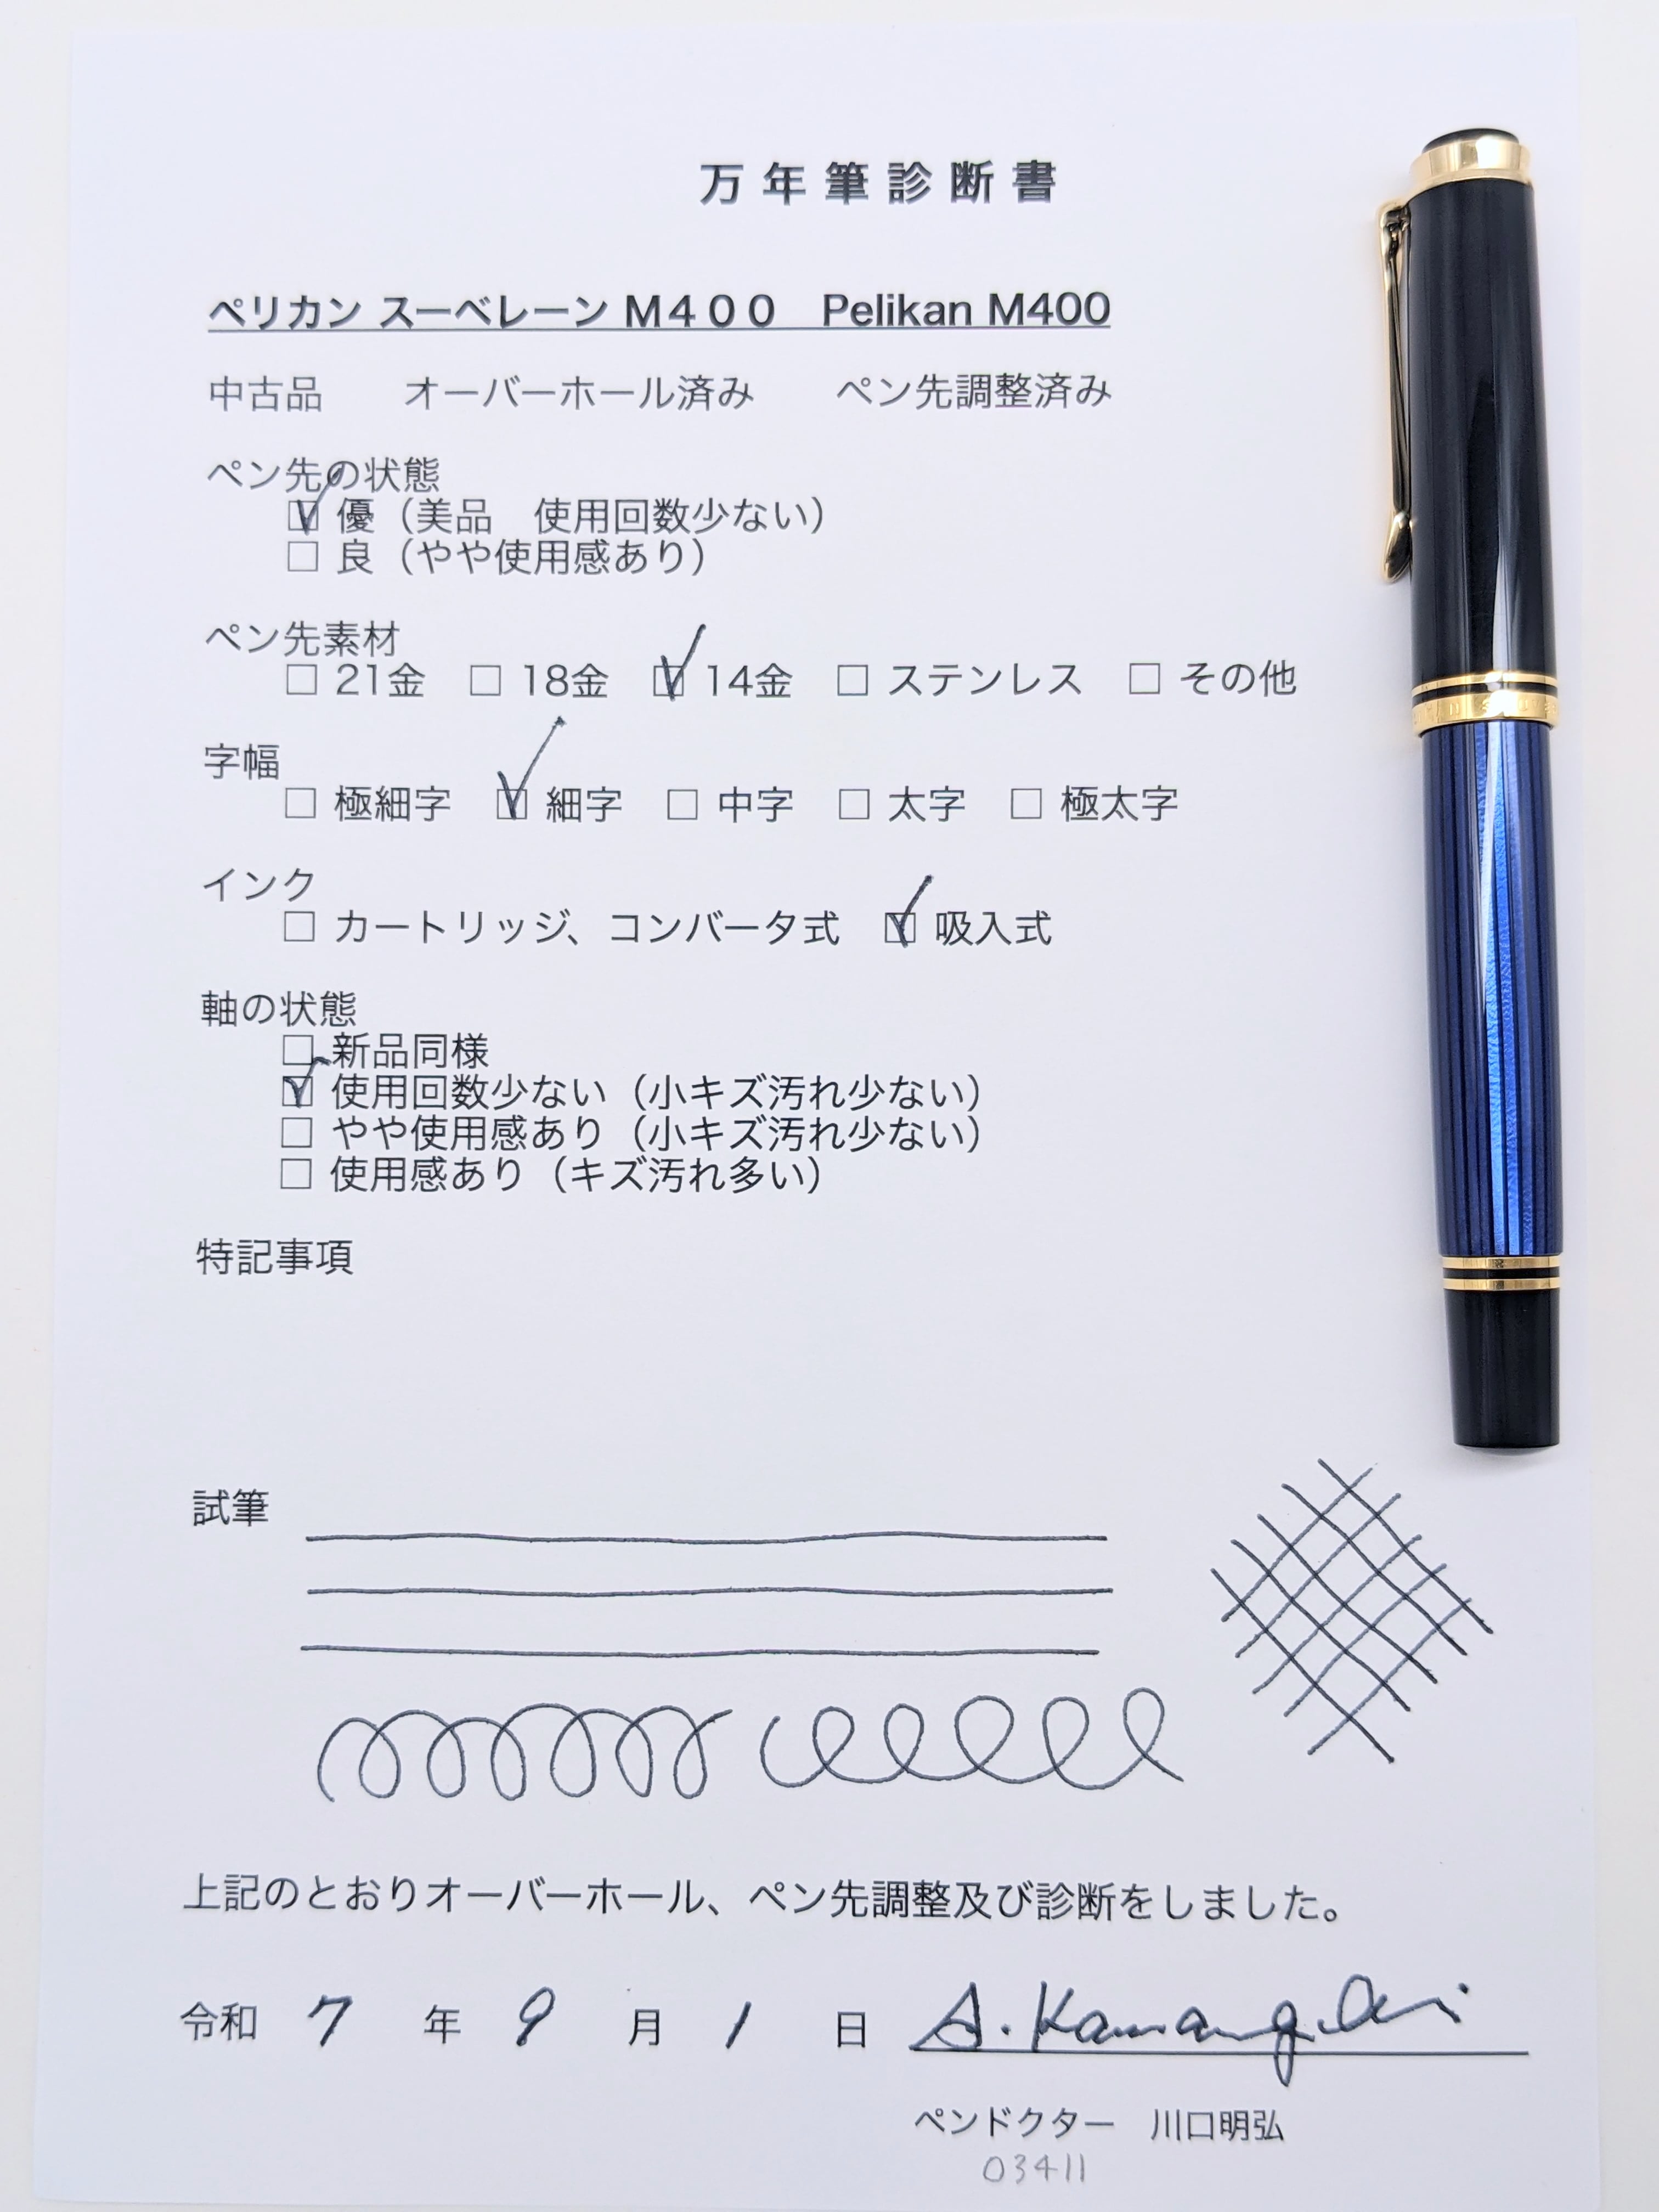 万年筆診断書
ペリカン スーベレーン M４００　Pelikan M400
中古品　　オーバーホール済み　　ペン先調整済み
ペン先の状態
☑ 優（美品　使用回数少ない）
□ 良（やや使用感あり）
ペン先素材
□ 21金　□ 18金　☑ 14金　□ ステンレス　□ その他
字幅
□ 極細字　☑ 細字　□ 中字　□ 太字　□ 極太字
インク
□ カートリッジ、コンバータ式　☑ 吸入式
軸の状態
□ 新品同様
☑ 使用回数少ない（小キズ汚れ少ない）
□ やや使用感あり（小キズ汚れ少ない）
□ 使用感あり（キズ汚れ多い）
特記事項
試筆
上記のとおりオーバーホール、ペン先調整及び診断をしました。
令和 7 年 9 月 1 日 A. Kawaguchi
ペンドクター　川口明弘
03411